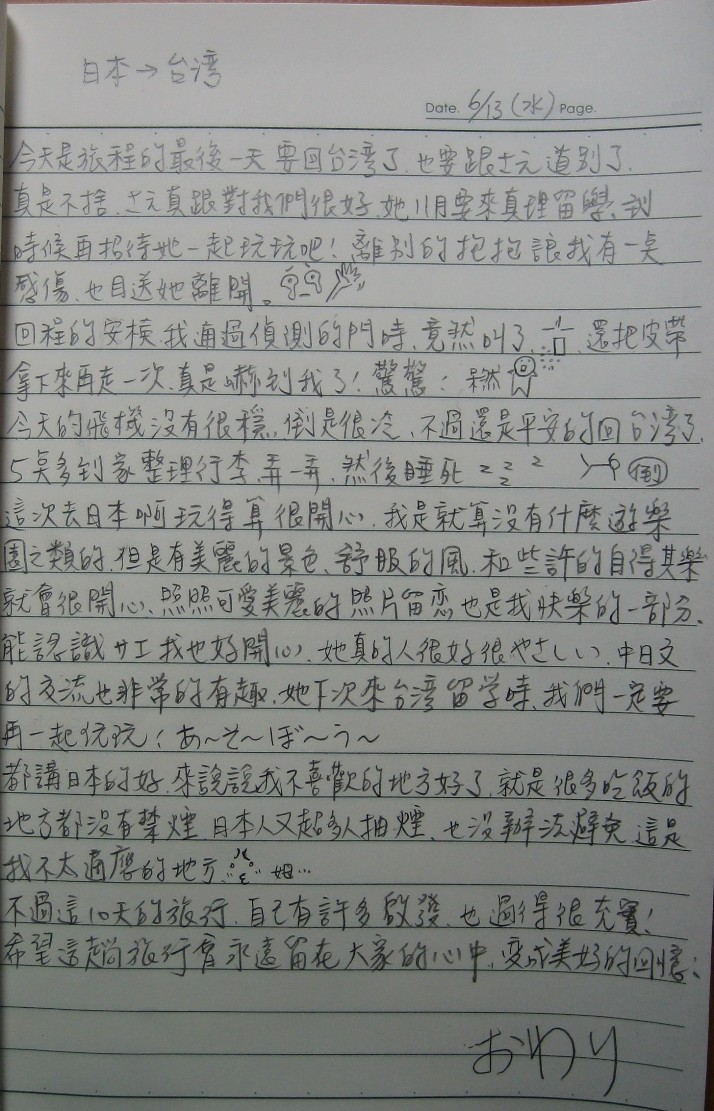 日本→台湾
Date. 6/13 (水) Page.
今天是旅程的最後一天 要回台湾了、也要跟士元道别了、
真是不捨、士元真跟對我們很好、她11月要來真理留學、到
時候再招待她一起玩玩吧！離別的抱抱讓我有一点
感傷、也目送她離開。
回程的安檢、我通過偵測的門時、竟然叫了、還把皮帶
拿下來再走一次、真是嚇到我了！驚驚！呆然
今天的飛機沒有很穩、倒是很冷、不過還是平安的回台湾了、
5点多到家整理行李、弄一弄、然後睡死 z z z z 倒
這次去日本啊玩得算很開心、我是就算沒有什麼遊樂
園之類的、但是有美麗的景色、舒服的風、和些許的自得其樂
就會很開心、照照可愛美麗的照片留恋也是我快樂的一部分、
能認識 サエ 我也好開心、她真的人很好很やさしい、中日文
的交流也非常的有趣、她下次來台湾留学時、我們一定要
再一起玩玩！あ～そ～ぼ～う～
都講日本的好、來說說我不喜歡的地方好了、就是很多吃飯的
地方都沒有禁煙、日本人又超多人抽煙、也沒辦法避免、這是
我不太適應的地方、姆…
不過這10天的旅行、自己有許多啟發、也過得很充實！
希望這趟旅行會永遠留在大家的心中、变成美好的回憶！
おわり